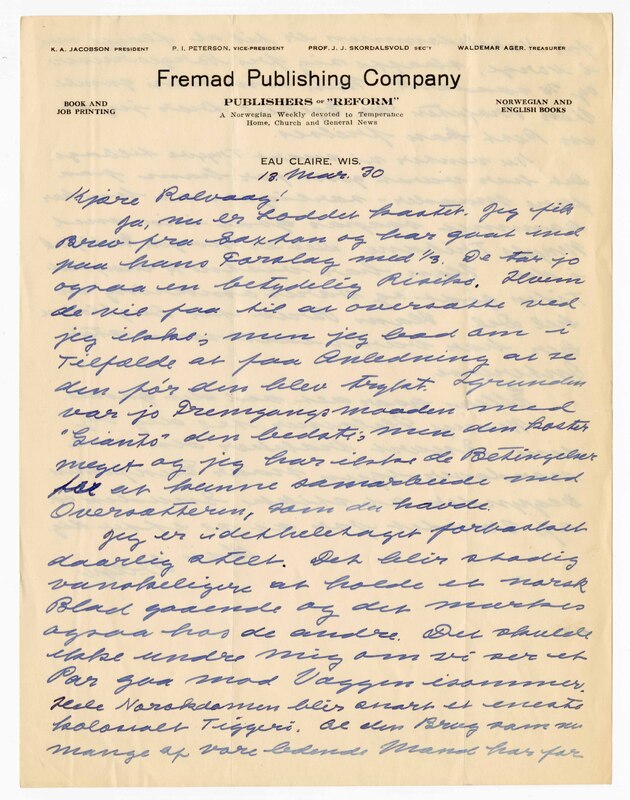 K. A. JACOBSON PRESIDENT P. I. PETERSON, VICE-PRESIDENT PROF. J. J. SKORDALSVOLD SEC'Y WALDEMAR AGER. TREASURER
Fremad Publishing Company
BOOK AND
JOB PRINTING
PUBLISHERS OF "REFORM"
A Norwegian Weekly devoted to Temperance
Home, Church and General News
NORWEGIAN AND
ENGLISH BOOKS
EAU CLAIRE, WIS.
18 Mar. 30
Kjære Rolvaag!
Ja, nu er Loddet kastet. Jeg fik
Brev fra Saxton og har gaat ind
paa hans Forslag med 1/3. De tar jo
ogsaa en betydelig Risiko. Hvem
de vil faa til at oversætte ved
jeg ikke; men jeg bad om i
Tilfælde at faa Anledning at se
den før den blev trykt. Igrunden
var jo Fremgangsmaaden med
"Giants" den bedste; men den koster
meget og jeg har ikke de Betingelser
at kunne samarbeide med
Oversætteren, som du havde.
Jeg er idetheletaget forbasket
daarlig stelt. Det blir stadig
vanskeligere at holde et norsk
Blad gaaende og det mærkes
ogsaa hos de andre. Det skulde
ikke undre mig om vi ser et
Par gaa mod Væggen isommer.
Hele Norskdomen blir snart et eneste
kolossalt Tiggeri. Al den Brug som nu
mange af vore ledende Mænd har for